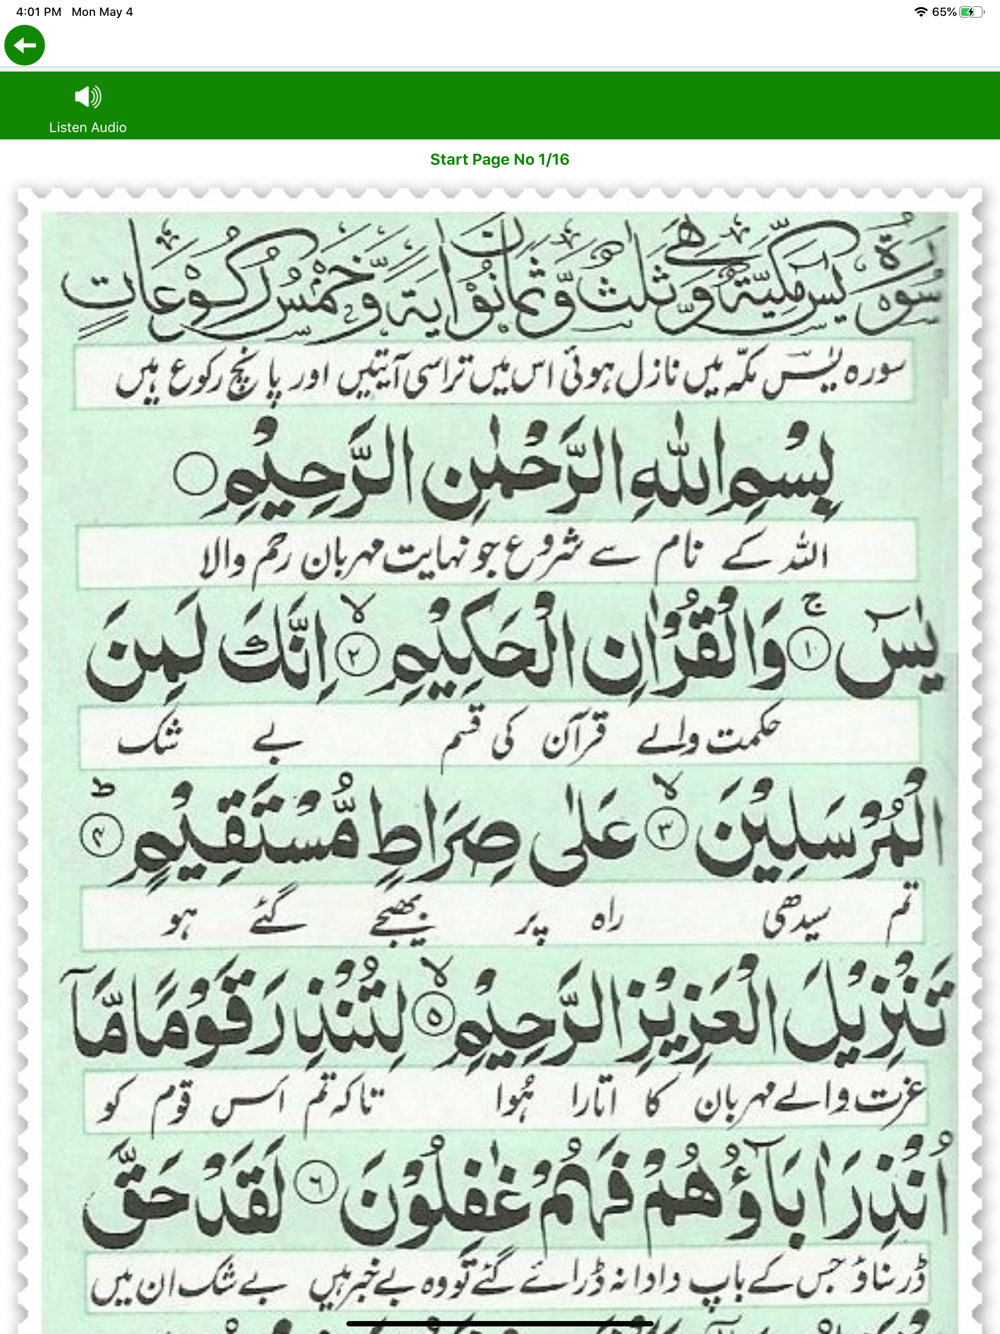 4:01 PM Mon May 4 65%
Listen Audio
Start Page No 1/16
سُورَةُ يٰسٓ مَكِّيَّةٌ وَّهِيَ ثَلٰثٌ وَّثَمَانُوْنَ اٰيَةً وَّخَمْسُ رُكُوْعَاتٍ
سورہ یٰسٓ مکہ میں نازل ہوئی اس میں تراسی آیتیں اور پانچ رکوع ہیں
بِسْمِ اللّٰهِ الرَّحْمٰنِ الرَّحِيْمِ ○
اللہ کے نام سے شروع جو نہایت مہربان رحم والا
يٰسٓ ۚ ﴿۱﴾ وَالْقُرْاٰنِ الْحَكِيْمِ ۙ ﴿۲﴾ اِنَّكَ لَمِنَ
حکمت والے قرآن کی قسم بے شک
الْمُرْسَلِيْنَ ۙ ﴿۳﴾ عَلٰى صِرَاطٍ مُّسْتَقِيْمٍ ؕ ﴿۴﴾
تم سیدھی راہ پر بھیجے گئے ہو
تَنْزِيْلَ الْعَزِيْزِ الرَّحِيْمِ ۙ ﴿۵﴾ لِتُنْذِرَ قَوْمًا مَّاۤ
عزت والے مہربان کا اتارا ہُوا تاکہ تم اس قوم کو
اُنْذِرَ اٰبَآؤُهُمْ فَهُمْ غٰفِلُوْنَ ﴿۶﴾ لَقَدْ حَقَّ
ڈر سناؤ جس کے باپ دادا نہ ڈرائے گئے تو وہ بے خبر ہیں بے شک ان میں